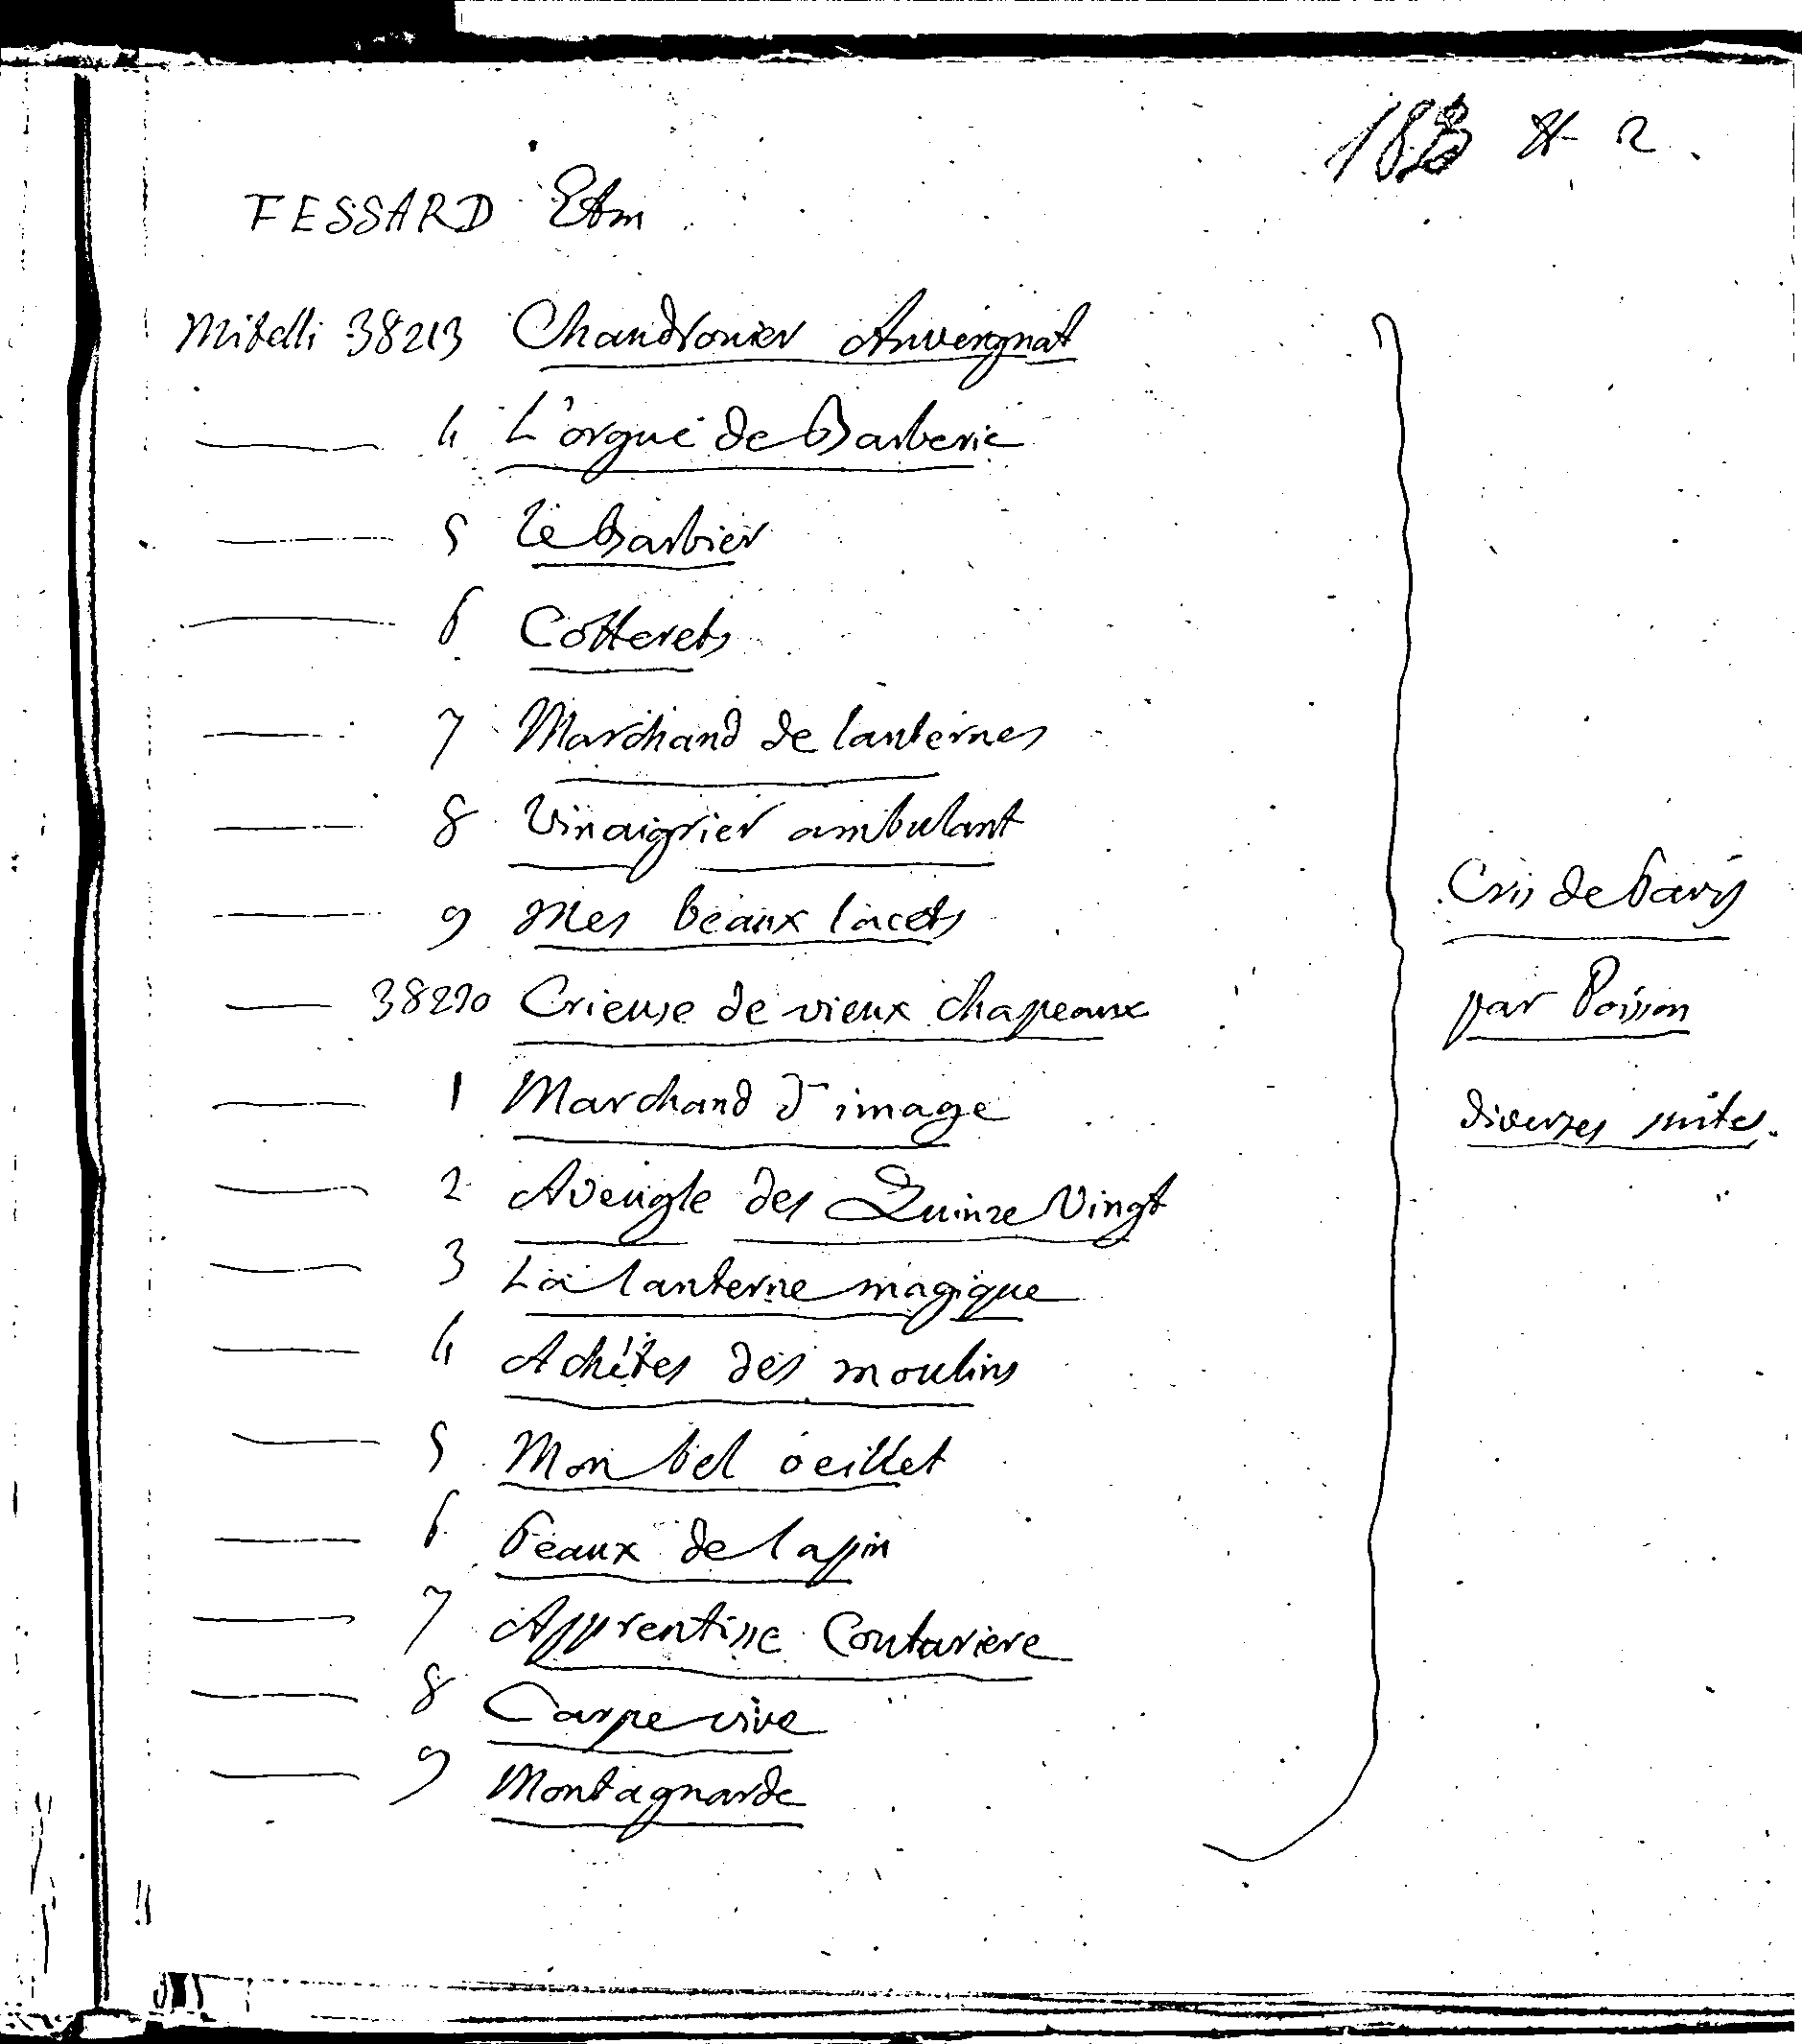 FESSARD Etm
Mitelli 38213 Chaudronier Auvergnat
4 L'orgue de Barberie
5 le Barbier
6 Cotterets
7 Marchand de lanternes
8 Vinaigrier ambulant
9 Mes beaux lacets
38220 Crieuse de vieux chapeaux
1 Marchand d'image
2 Aveugle des Quinze Vingt
3 La lanterne magique
4 Achètes des moulins
5 Mon bel oeillet
6 Peaux de lapin
7 Apprentisse Couturiere
8 Carpe vive
9 Montagnarde
Cris de Paris
par Poisson
diverses suites.